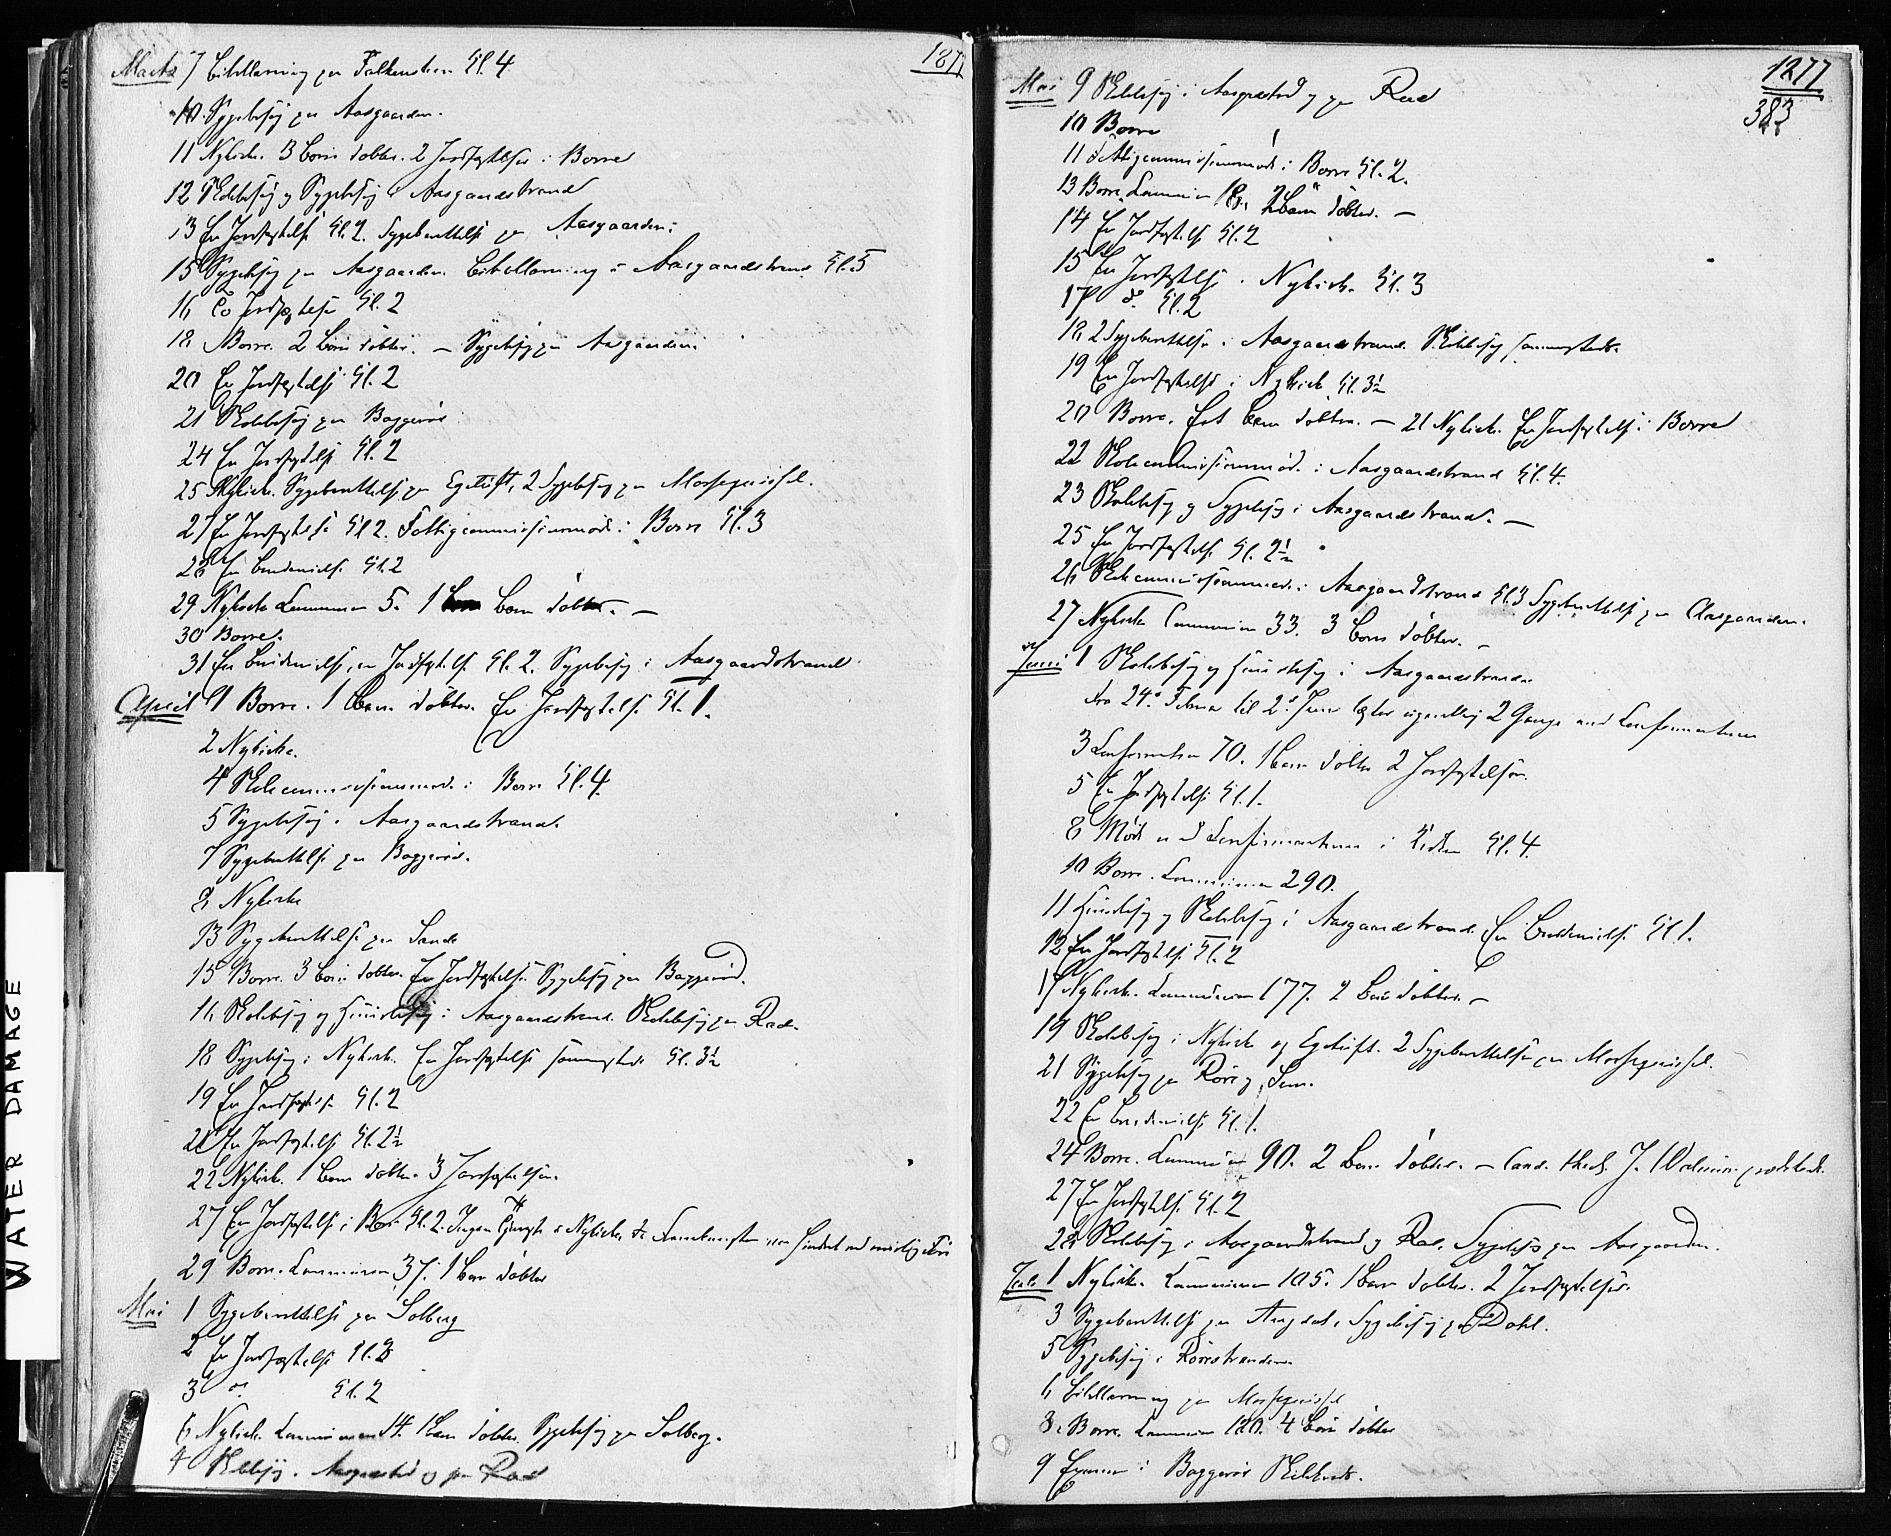 1877
Marts 7 Bibellæsning paa Falkensteen Kl. 4
10 Sygebesøg paa Aasgaarden.
11 Nykirke. 3 Børn døbte. 2 Jordfæstelser i Borre
12 Skolebesøg og Sygebesøg i Aasgaardstrand
13 En Jordfæstelse Kl. 2. Sygeberettelse paa Aasgaarden.
15 Sygebesøg paa Aasgaarden. Bibellæsning i Aasgaardstrand Kl. 5
16 En Jordfæstelse Kl. 2
18 Borre. 2 Børn døbte. – Sygebesøg paa Aasgaarden.
20 En Jordfæstelse Kl. 2
21 Skolebesøg paa Baggerød
24 En Jordfæstelse Kl. 2
25 Nykirke. Sygeberettelse paa Egetuft, 2 Sygebesøg paa
27 En Jordfæstelse Kl. 2. Fattigcommissionsmøde i Borre Kl. 3
28 En Kl. 2
29 Nykirke Communion 5. 1 Barn døbt. –
30 Borre.
31 En en Jordfæstelse Kl. 2. Sygebesøg i Aasgaardstrand
April 1 Borre. 1 Barn døbt. En Jordfæstelse Kl. 1.
2 Nykirke.
4 Skolecommissionsmøde i Borre Kl. 4.
5 Sygebesøg i Aasgaardstrand.
7 Sygeberettelse paa Baggerød.
8 Nykirke
13 Sygeberettelse paa Sande
15 Borre. 3 Børn døbte. En Jordfæstelse. Sygebesøg paa Baggerød.
16 Skolebesøg og Huusbesøg i Aasgaardstrand. Skolebesøg paa Rød.
18 Sygebesøg i Nykirke. En Jordfæstelse sammesteds Kl. 3½
19 En Jordfæstelse Kl. 2
21 En Jordfæstelse Kl. 2½
22 Nykirke. 1 Barn døbt. 3 Jordfæstelser.
27 En Jordfæstelse i Borre Kl. 2. Ingen Tjeneste i Nykirke, da
29 Borre. Communion 37. 1 Barn døbt
Mai 1 Sygeberettelse paa Solberg
2 En Jordfæstelse Kl. 2
3 do Kl. 2
6 Nykirke. Communion 14. 1 Barn døbt. Sygebesøg paa Solberg.
Skolebesøg i og paa Rød
1277
383
Mai 9 Skolebesøg i og paa Rød
10 Borre
11 Fattigcommissionsmøde i Borre Kl. 2.
13 Borre. Communion 18. 2 Børn døbte. –
14 En Jordfæstelse Kl. 2
15 En Jordfæstelse i Nykirke Kl. 3
17 do Kl. 2
18 2 Sygeberettelser i Aasgaardstrand. Skolebesøg sammesteds.
19 En Jordfæstelse i Nykirke Kl. 3½
20 Borre. Et Barn døbt. – 21 Nykirke. En Jordfæstelse i Borre
22 Skolecommissionsmøde i Aasgaardstrand Kl. 4.
23 Skolebesøg og Sygebesøg i Aasgaardstrand. –
25 En Jordfæstelse Kl. 2½
26 Skolecommissionsmøde i Aasgaardstrand Kl. 3 Sygeberettelse paa Aasgaarden.
27 Nykirke Communion 33. 3 Børn døbte. –
Juni 1 Skolebesøg og Huusbesøg i Aasgaardstrand.
Fra 24de Februar til 2den Juni læstes ugentlig 2 Gange med Confirmanterne
3 Confirmation 70. 1 Barn døbt 2 Jordfæstelser.
5 En Jordfæstelse Kl. 1.
8 Møde med Confirmanterne i Kirken Kl. 4.
10 Borre. Communion 290.
11 Huusbesøg og Skolebesøg i Aasgaardstrand. En Kl. 1.
12 En Jordfæstelse Kl. 2
17 Nykirke. Communion 177. 2 Børn døbte. –
19 Skolebesøg i Nykirke og Egetuft. 2 Sygeberettelser paa
21 Sygebesøg paa Røre og Sem.
22 En Kl. 1.
24 Borre. Communion 90. 2 Børn døbte. – Cand. theol. J. prædikede.
27 En Jordfæstelse Kl. 2
28 Skolebesøg i Aasgaardstrand og Rød. Sygebesøg paa Aasgaarden.
Juli 1 Nykirke. Communion 105. 1 Barn døbt. 2 Jordfæstelser.
3 Sygeberettelse paa Sygebesøg paa Dahl.
5 Sygebesøg i Rørestranden
6 Bibellæsning paa
8. Borre. Communion 120. 4 Børn døbte
9 Examen i Baggerød Skolekreds.
WATER DAMAGE